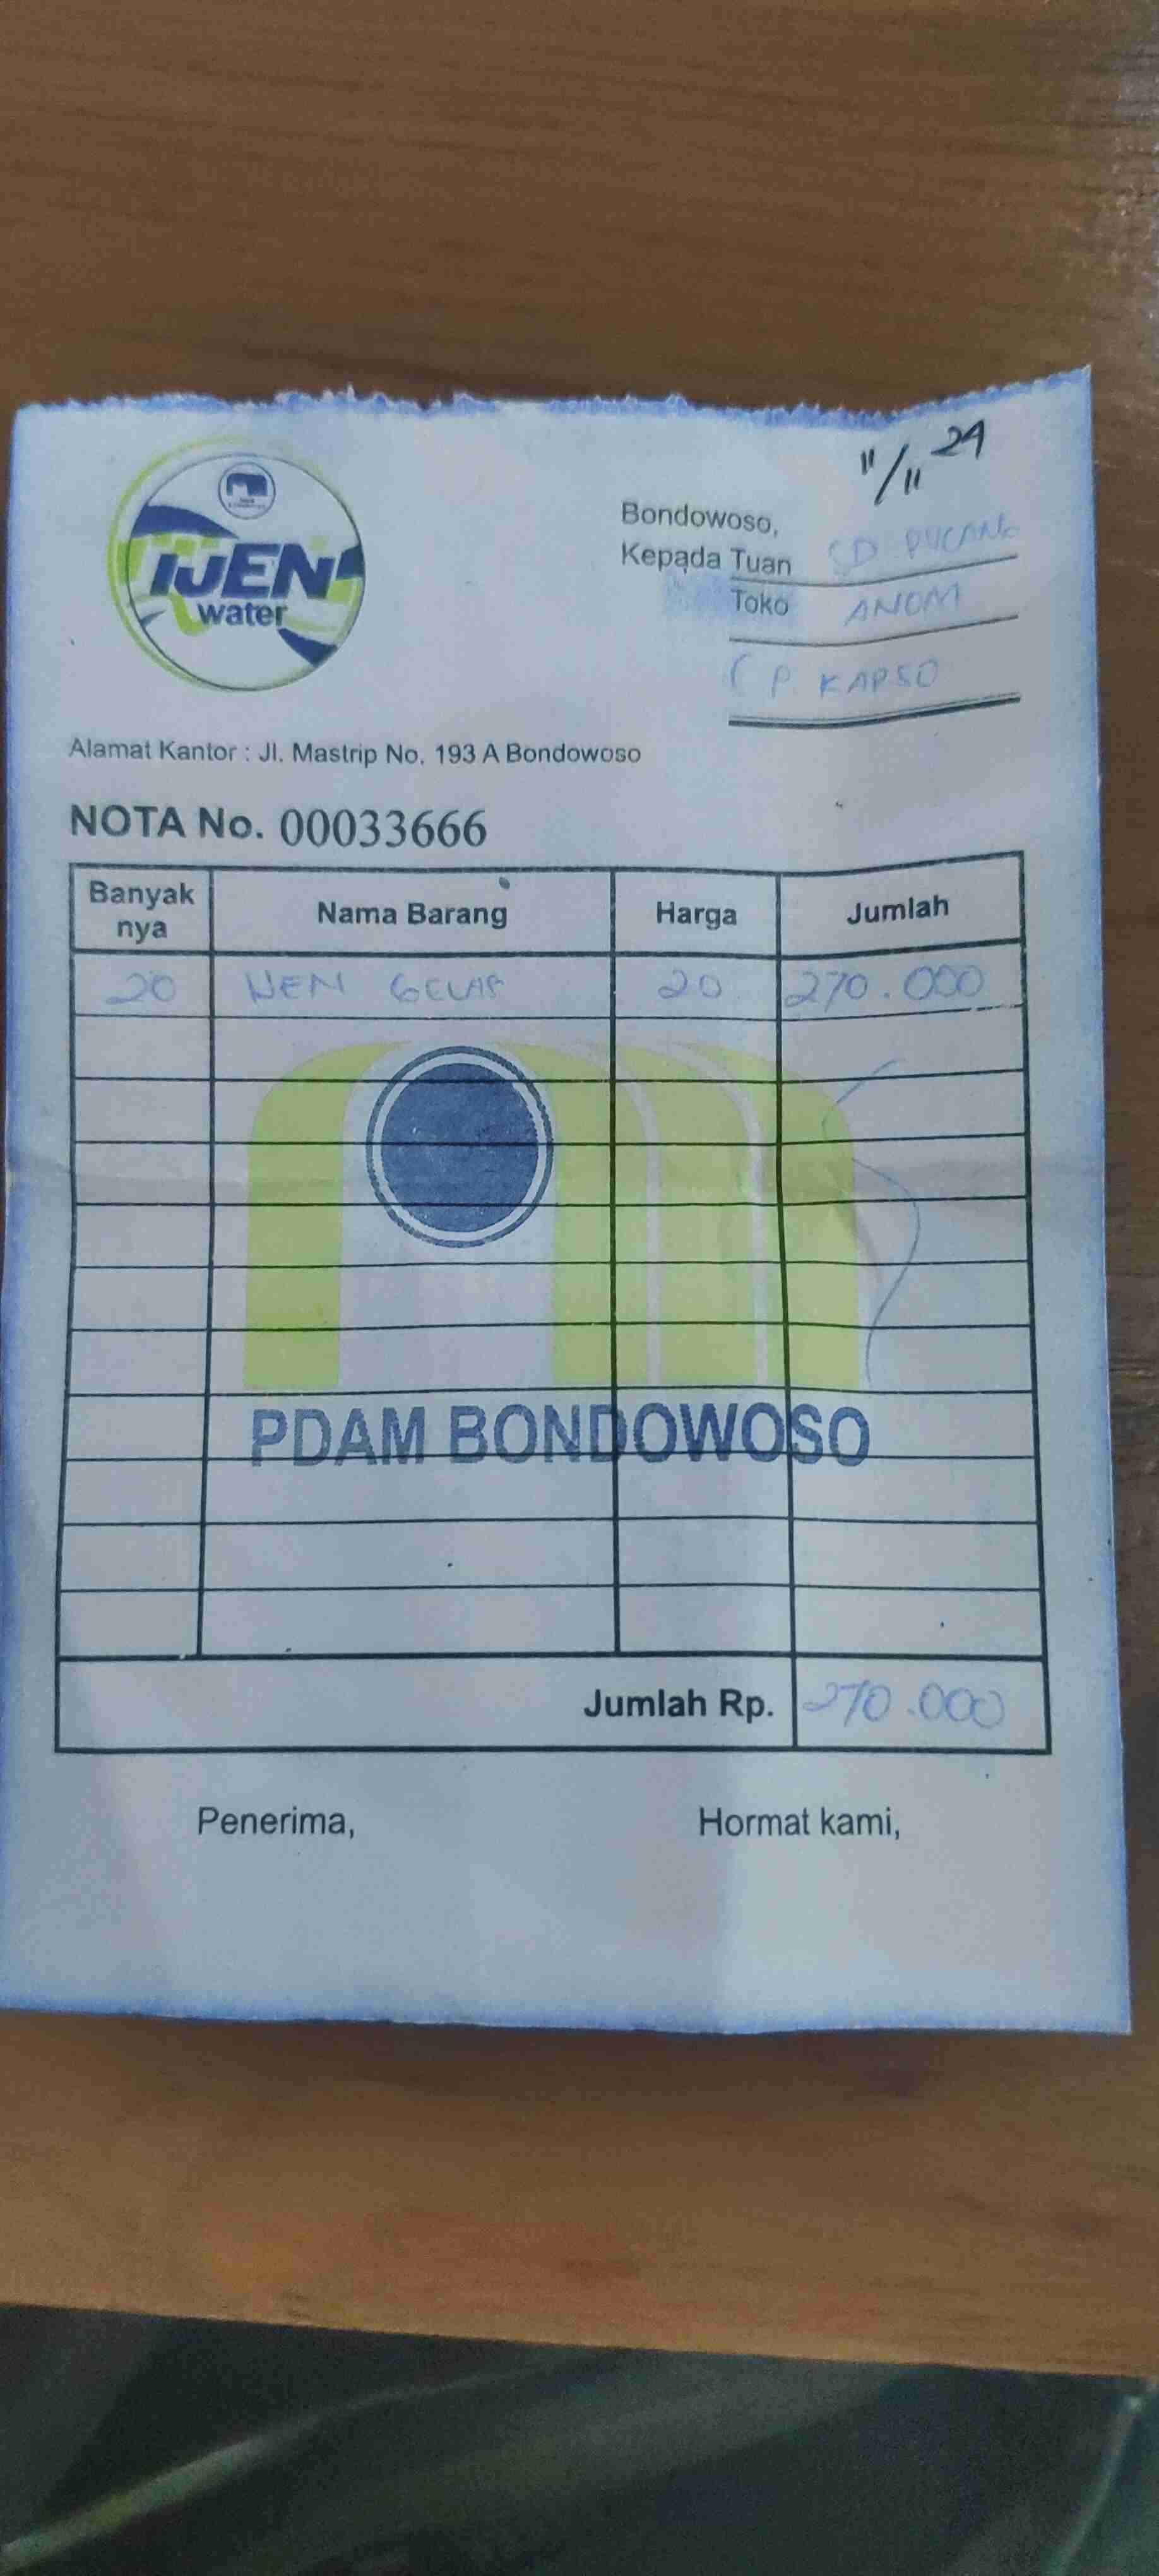 IJEN
water
11/11 24
Bondowoso,
Kepada Tuan SD PUCANG
Toko ANOM
( P. KARSO
Alamat Kantor : Jl. Mastrip No. 193 A Bondowoso
NOTA No. 00033666
Banyak nya Nama Barang Harga Jumlah
20 IJEN GELAS 20 270.000
PDAM BONDOWOSO
Jumlah Rp. 270.000
Penerima, Hormat kami,